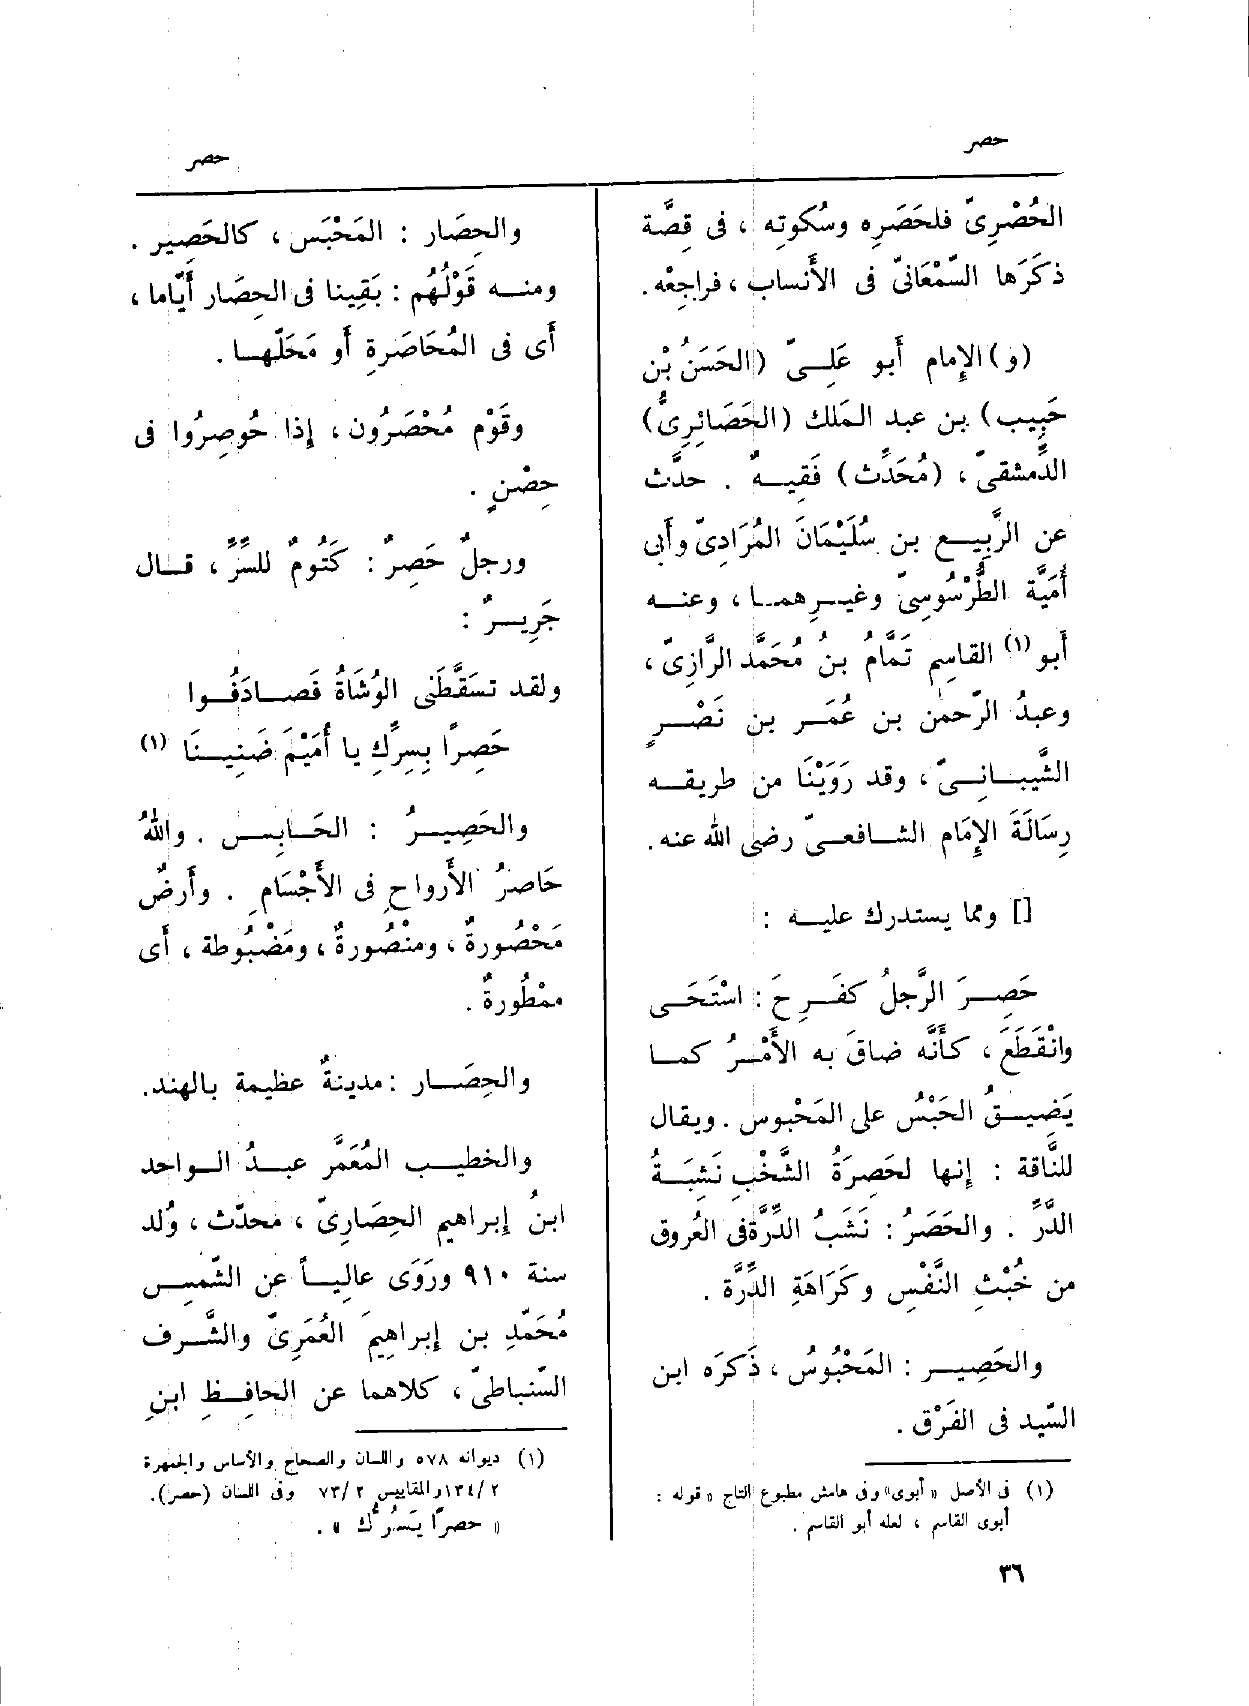 حصر
حصر
الحُصْرِىّ فلحَصَرِه وسُكوتِه ، فى قِصَّة
ذكَرَها السَّمْعَانىّ فى الأَنساب ، فراجِعْه .
(و) الإِمام أَبو عَلِىّ (الحَسَنُ بْن
حَبِيب) بن عبد الملك (الحَصَائِرِىُّ)
الدِّمشقىّ ، (مُحَدِّث) فَقِيهٌ . حدَّث
عن الرَّبِيع بن سُلَيْمَانَ المُرَادِىّ وأَبى
أُمَيَّة الطَّرْسُوسِىّ وغيرِهما ، وعنه
أَبو (١) القاسِم تَمَّامُ بنُ مُحَمَّد الرَّازِىّ ،
وعبدُ الرّحمٰن بن عُمَر بن نَصْرٍ
الشَّيبانِىّ ، وقد رَوَيْنَا من طريقه
رِسَالَةَ الإِمَام الشافعىّ رضى الله عنه .
[] ومما يستدرك عليه :
حَصِرَ الرَّجلُ كفَرِحَ : اسْتَحَى
وانْقَطَعَ ، كأَنَّه ضاقَ به الأَمْرُ كما
يَضِيقُ الحَبْسُ على المَحْبوس . ويقال
للنَّاقة : إِنها لحَصِرَةُ الشَّخْبِ نَشِبَةُ
الدَّرِّ . والحَصَرُ : نَشَبُ الدِّرَّة فى العُروق
من خُبْثِ النَّفْسِ وكَرَاهَةِ الدِّرَّة .
والحَصِير : المَحْبُوسُ ، ذَكَرَه ابن
السِّيد فى الفَرْق .
(١) فى الأصل «أبوى» وفى هامش مطبوع التاج «قوله :
أبوى القاسم ، لعله أبو القاسم .
والحِصَار : المَحْبَس ، كالحَصِير .
ومنه قَوْلُهُم : بَقِينا فى الحِصَار أَيَّاما ،
أَى فى المُحَاصَرةِ أَو مَحَلّها .
وقَوْم مُحْصَرُون ، إِذا حُوصِرُوا فى
حِصْنٍ .
ورجلٌ حَصِرٌ : كَتُومٌ للسِّرِّ ، قال
جَرِيرٌ :
ولقد تسَقَّطَنى الوُشَاةُ فَصادَفُوا
حَصِرًا بِسِرِّكِ يا أُمَيْمَ ضَنِينَا (١)
والحَصِيرُ : الحَابِس . واللهُ
حَاصرُ الأَرواحِ فى الأَجْسَامِ . وأَرضٌ
مَحْصُورةٌ ، ومنْصُورةٌ ، ومَضْبُوطة ، أَى
ممْطُورةٌ .
والحِصَار : مدينةٌ عظيمة بالهند .
والخطيب المُعَمَّر عبدُ الواحد
ابنُ إِبراهيم الحِصَارِىّ ، محدّث ، وُلد
سنة ٩١٠ ورَوَى عالِياً عن الشّمس
مُحَمّدِ بن إِبراهِيمَ العُمَرِىّ والشَّرف
السّنباطىّ ، كلاهما عن الحافِظِ ابنِ
(١) ديوانه ٥٧٨ واللسان والصحاح والأساس والجمهرة
٢ /١٣٤ والمقاييس ٢ /٧٣ وفى اللسان (حصر) .
« حصرًا يَسُرُّك » .
٣٦